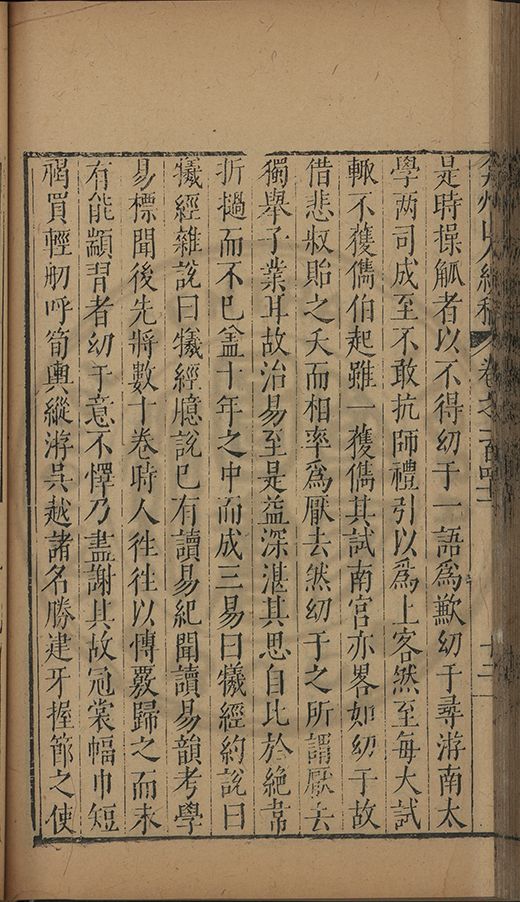 弇州山人續稿 卷之一百四十
是時操觚者以不得幼于一語為歉幼于尋游南太
學两司成至不敢抗師禮引以為上客然至每大試
輙不獲儁伯起雖一獲儁其試南宫亦畧如幼于故
借悲叔貽之夭而相率為厭去然幼于之所謂厭去
獨舉子業耳故治易至是益深湛其思自比於絶韋
折擿而不已盖十年之中而成三易曰犧經約說曰
犧經雜說曰犧經臆說巳有讀易紀聞讀易韻考學
易標聞後先將數十卷時人徃徃以傳覈歸之而未
有能顓胥者幼于意不懌乃盡謝其故冠裳幅巾短
褐買輕舠呼筍輿縱游吳越諸名勝建牙握節之使